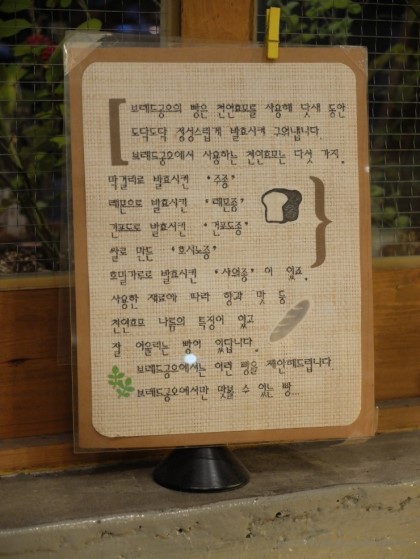 브레드공오의 빵은 천연효모를 사용해 닷새 동안
도닥도닥 정성스럽게 발효시켜 구워냅니다.
브레드공오에서 사용하는 천연효모는 다섯 가지.
막걸리로 발효시킨 '주종'
레몬으로 발효시킨 '레몬종'
건포도로 발효시킨 '건포도종'
쌀로 만든 '호시노종'
호밀가루로 발효시킨 '사워종' 이 있죠.
사용한 재료에 따라 향과 맛 등
천연효모 나름의 특징이 있고
잘 어울리는 빵이 있답니다.
브레드공오에서는 이런 빵을 제안해드립니다
브레드공오에서만 맛볼 수 있는 빵...